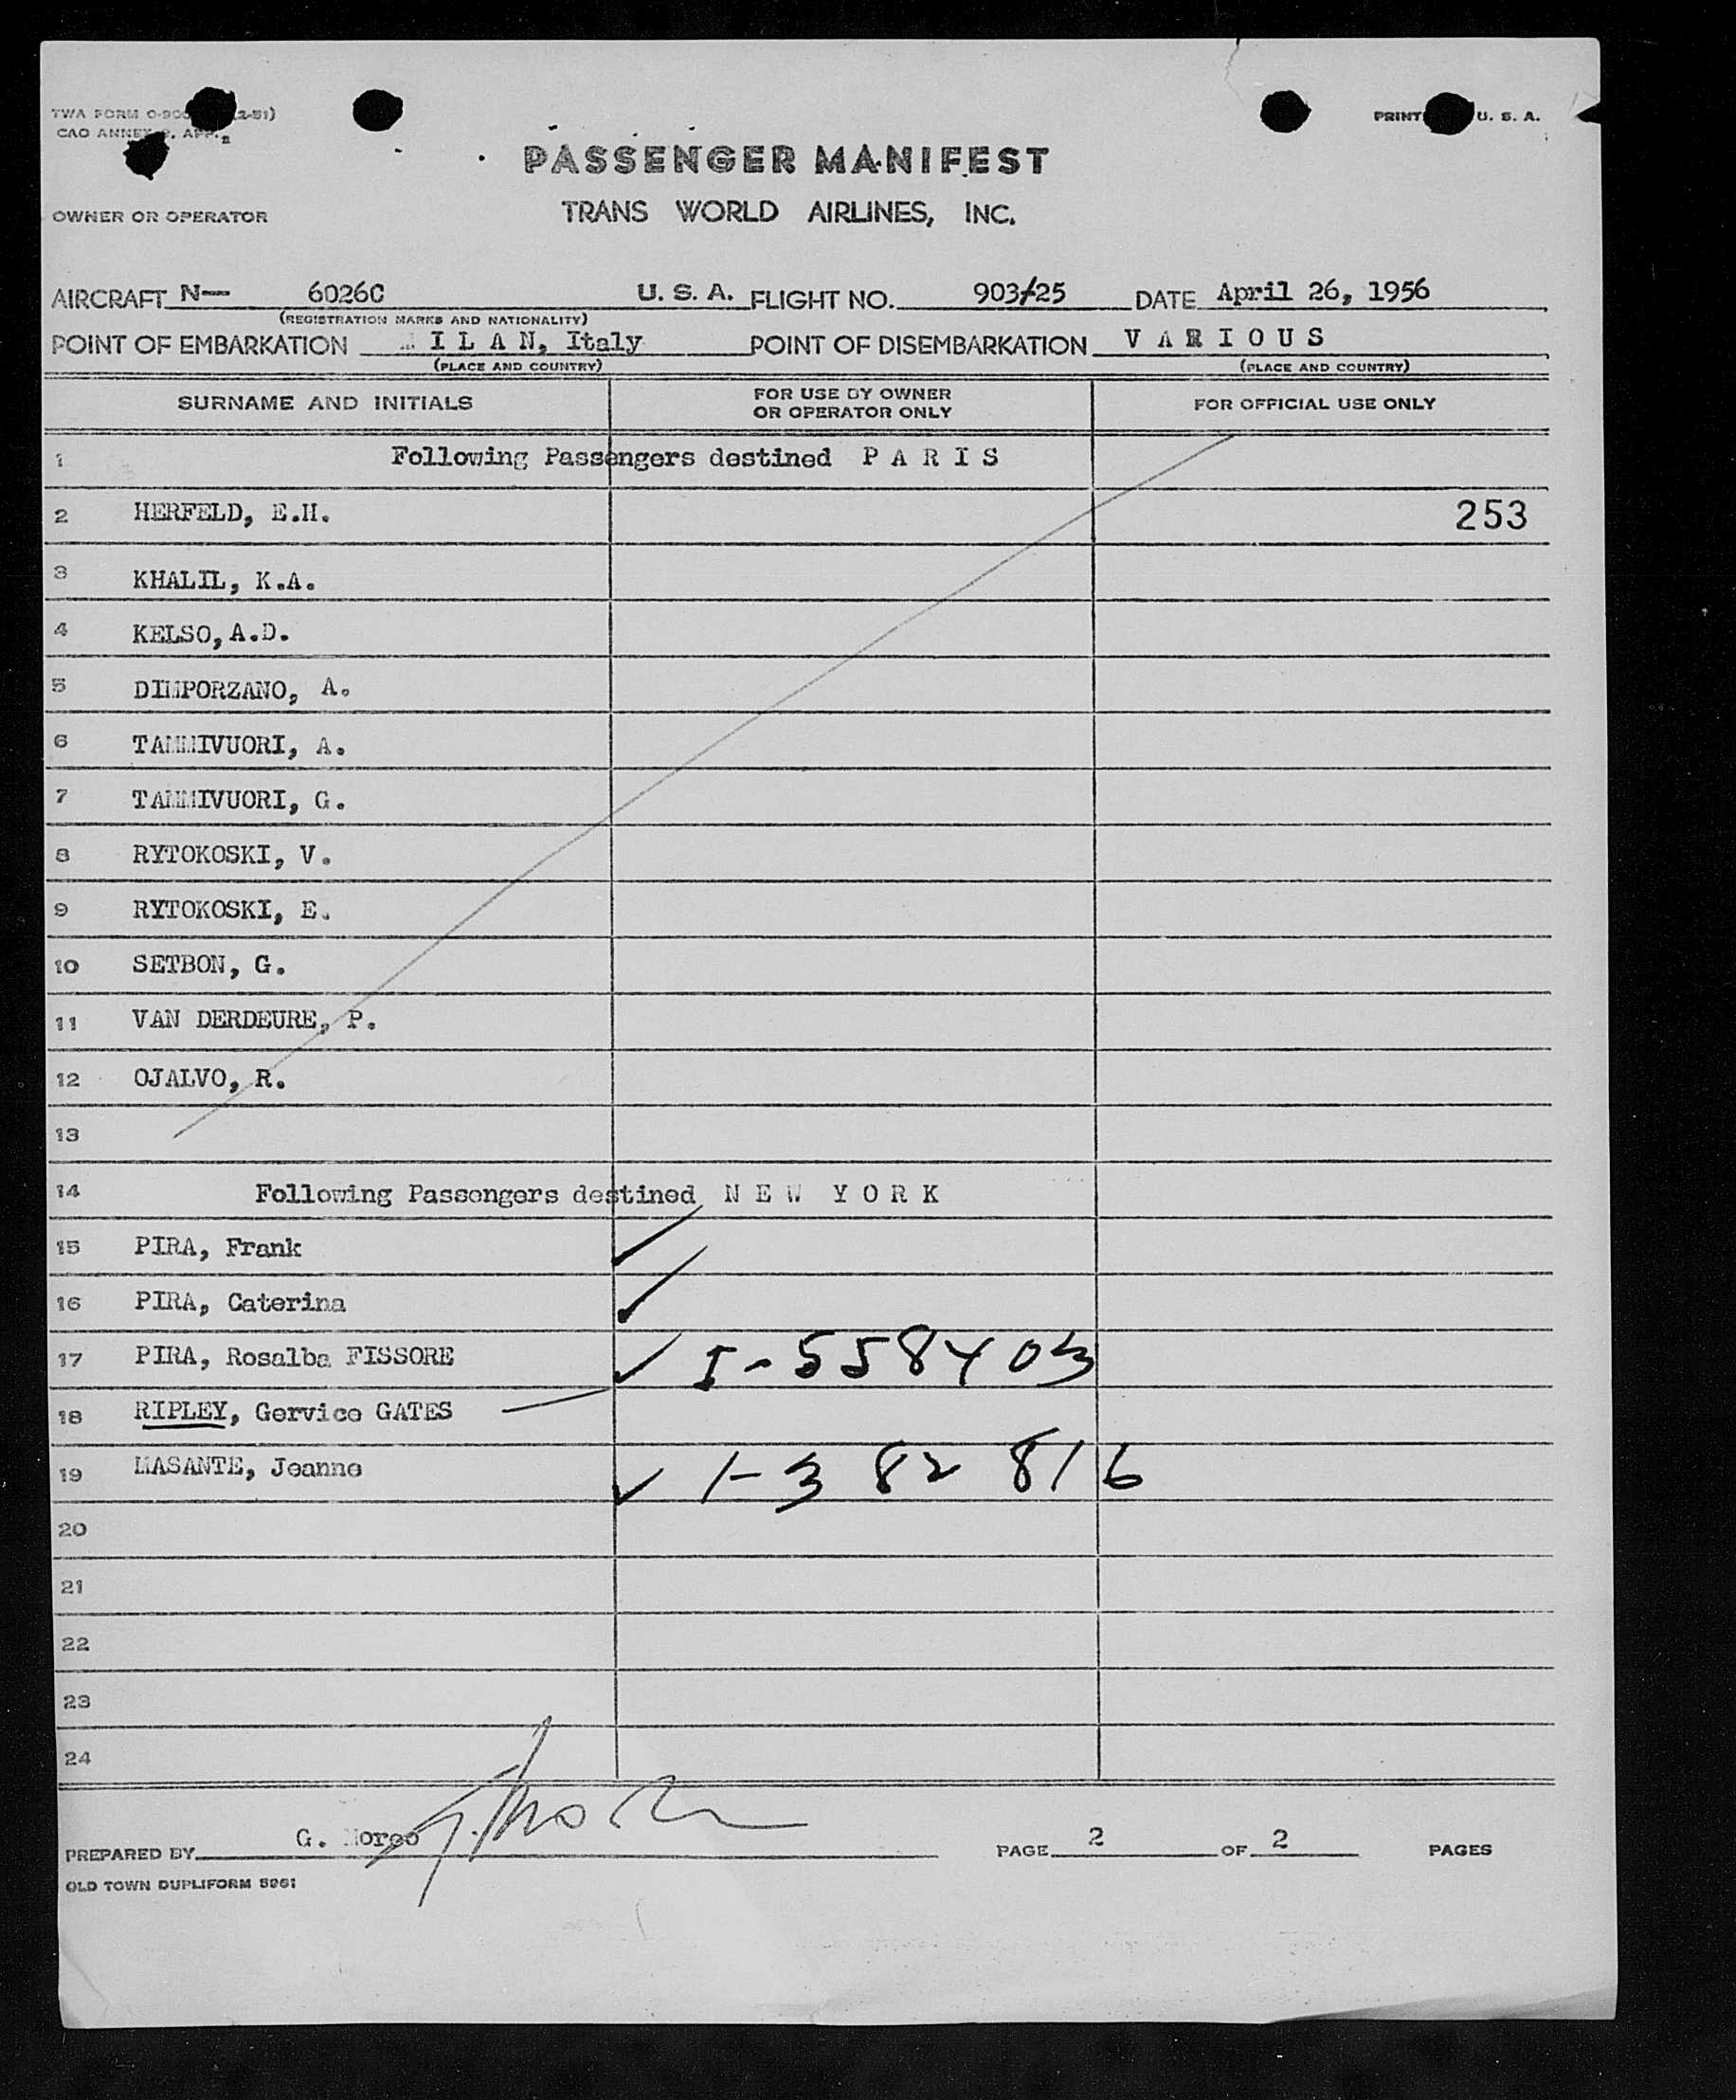 TWA FORM
CAO ANNEX
PRINT U. S. A.
PASSENGER MANIFEST
OWNER OR OPERATOR
TRANS WORLD AIRLINES, INC.
AIRCRAFT N— 6026C U. S. A. FLIGHT NO. 903/25 DATE April 26, 1956
(REGISTRATION MARKS AND NATIONALITY)
POINT OF EMBARKATION MILAN, Italy POINT OF DISEMBARKATION VARIOUS
(PLACE AND COUNTRY) (PLACE AND COUNTRY)
SURNAME AND INITIALS FOR USE BY OWNER OR OPERATOR ONLY FOR OFFICIAL USE ONLY
1 Following Passengers destined PARIS
2 HERFELD, E.H. 253
3 KHALIL, K.A.
4 KELSO, A.D.
5 DIMPORZANO, A.
6 TAMMIVUORI, A.
7 TAMMIVUORI, G.
8 RYTOKOSKI, V.
9 RYTOKOSKI, E.
10 SETBON, G.
11 VAN DERDEURE, P.
12 OJALVO, R.
13
14 Following Passengers destined NEW YORK
15 PIRA, Frank ✓
16 PIRA, Caterina ✓
17 PIRA, Rosalba FISSORE ✓ I-558403
18 RIPLEY, Gervice GATES
19 MASANTE, Jeanne ✓ 1-382816
20
21
22
23
24
PREPARED BY G. PAGE 2 OF 2 PAGES
OLD TOWN DUPLIFORM 5961